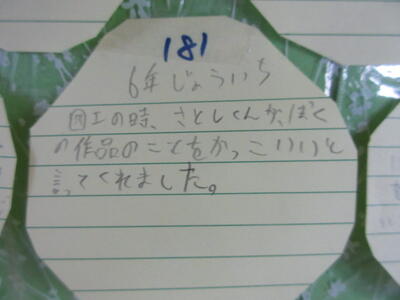 181
6年じょういち
図工の時、さとしくんが、ぼく
の作品のことをかっこいいと
言ってくれました。